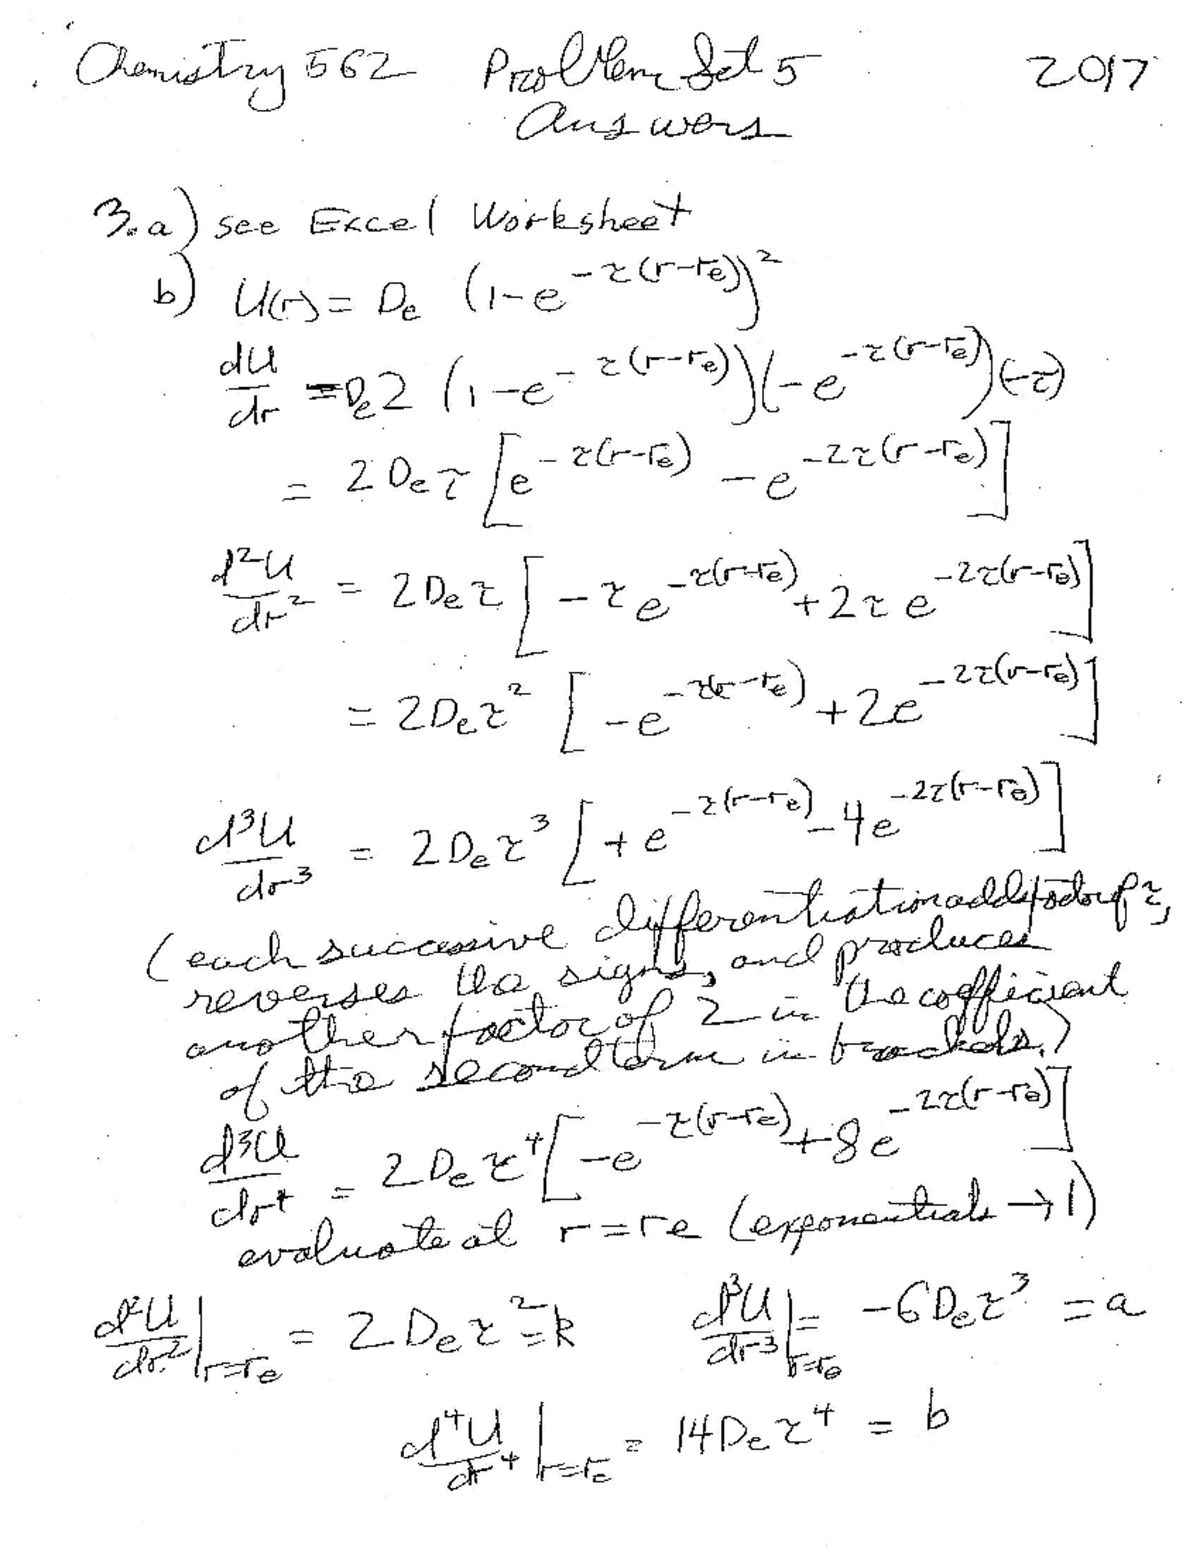 Chemistry 562 Problem Set 5 2017
Answers
3.a) see Excel Worksheet
b) U(r) = De (1-e^{-τ(r-re)})^2
dU/dr = De 2 (1-e^{-τ(r-re)})(-e^{-τ(r-re)})(-τ)
= 2Deτ [e^{-τ(r-re)} - e^{-2τ(r-re)}]
d²U/dr² = 2Deτ [-τe^{-τ(r-re)} + 2τe^{-2τ(r-re)}]
= 2Deτ² [-e^{-τ(r-re)} + 2e^{-2τ(r-re)}]
d³U/dr³ = 2Deτ³ [+e^{-τ(r-re)} - 4e^{-2τ(r-re)}]
(each successive differentiation adds factor of τ,
reverses the signs, and produces
another factor of 2 in the coefficient
of the second term in brackets.)
d³U/dr⁴ = 2Deτ⁴ [-e^{-τ(r-re)} + 8e^{-2τ(r-re)}]
evaluate at r=re (exponentials → 1)
d²U/dr²|r=re = 2Deτ² = k d³U/dr³|r=re = -6Deτ³ = a
d⁴U/dr⁴|r=re = 14Deτ⁴ = b